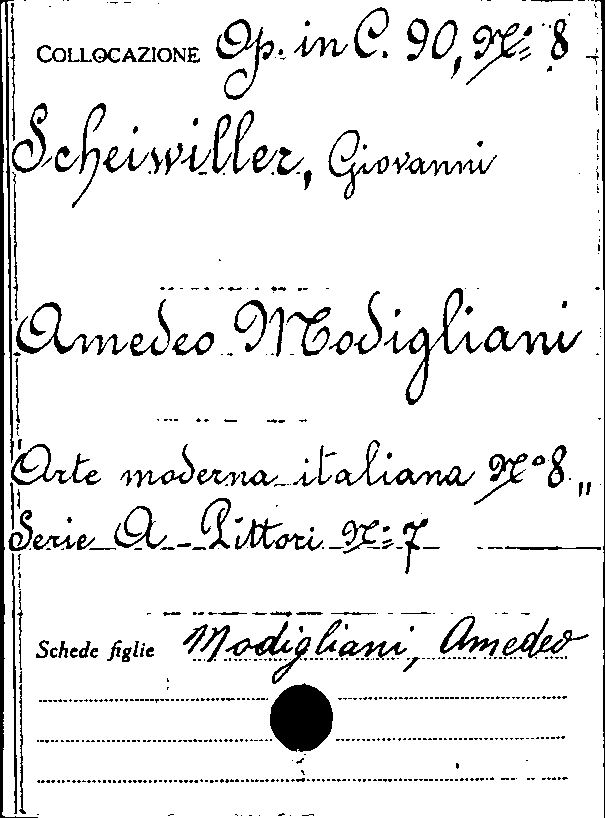 COLLOCAZIONE Op. in C. 90, Nº 8
Scheiwiller, Giovanni
Amedeo Modigliani
Arte moderna italiana Nº 8,,
Serie A - Pittori Nº 7
Schede figlie Modigliani, Amedeo